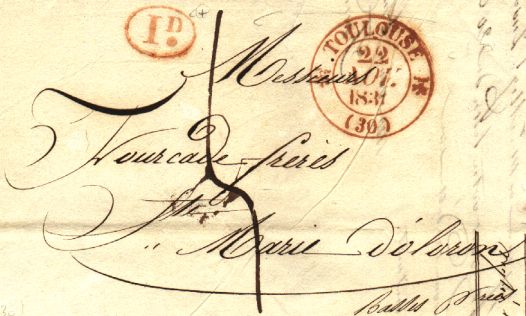 1D.
TOULOUSE
22
AOU.
183
(30)
Messieurs
Fourcade frères
Ste
Marie d'oloron
Basses Pyrées